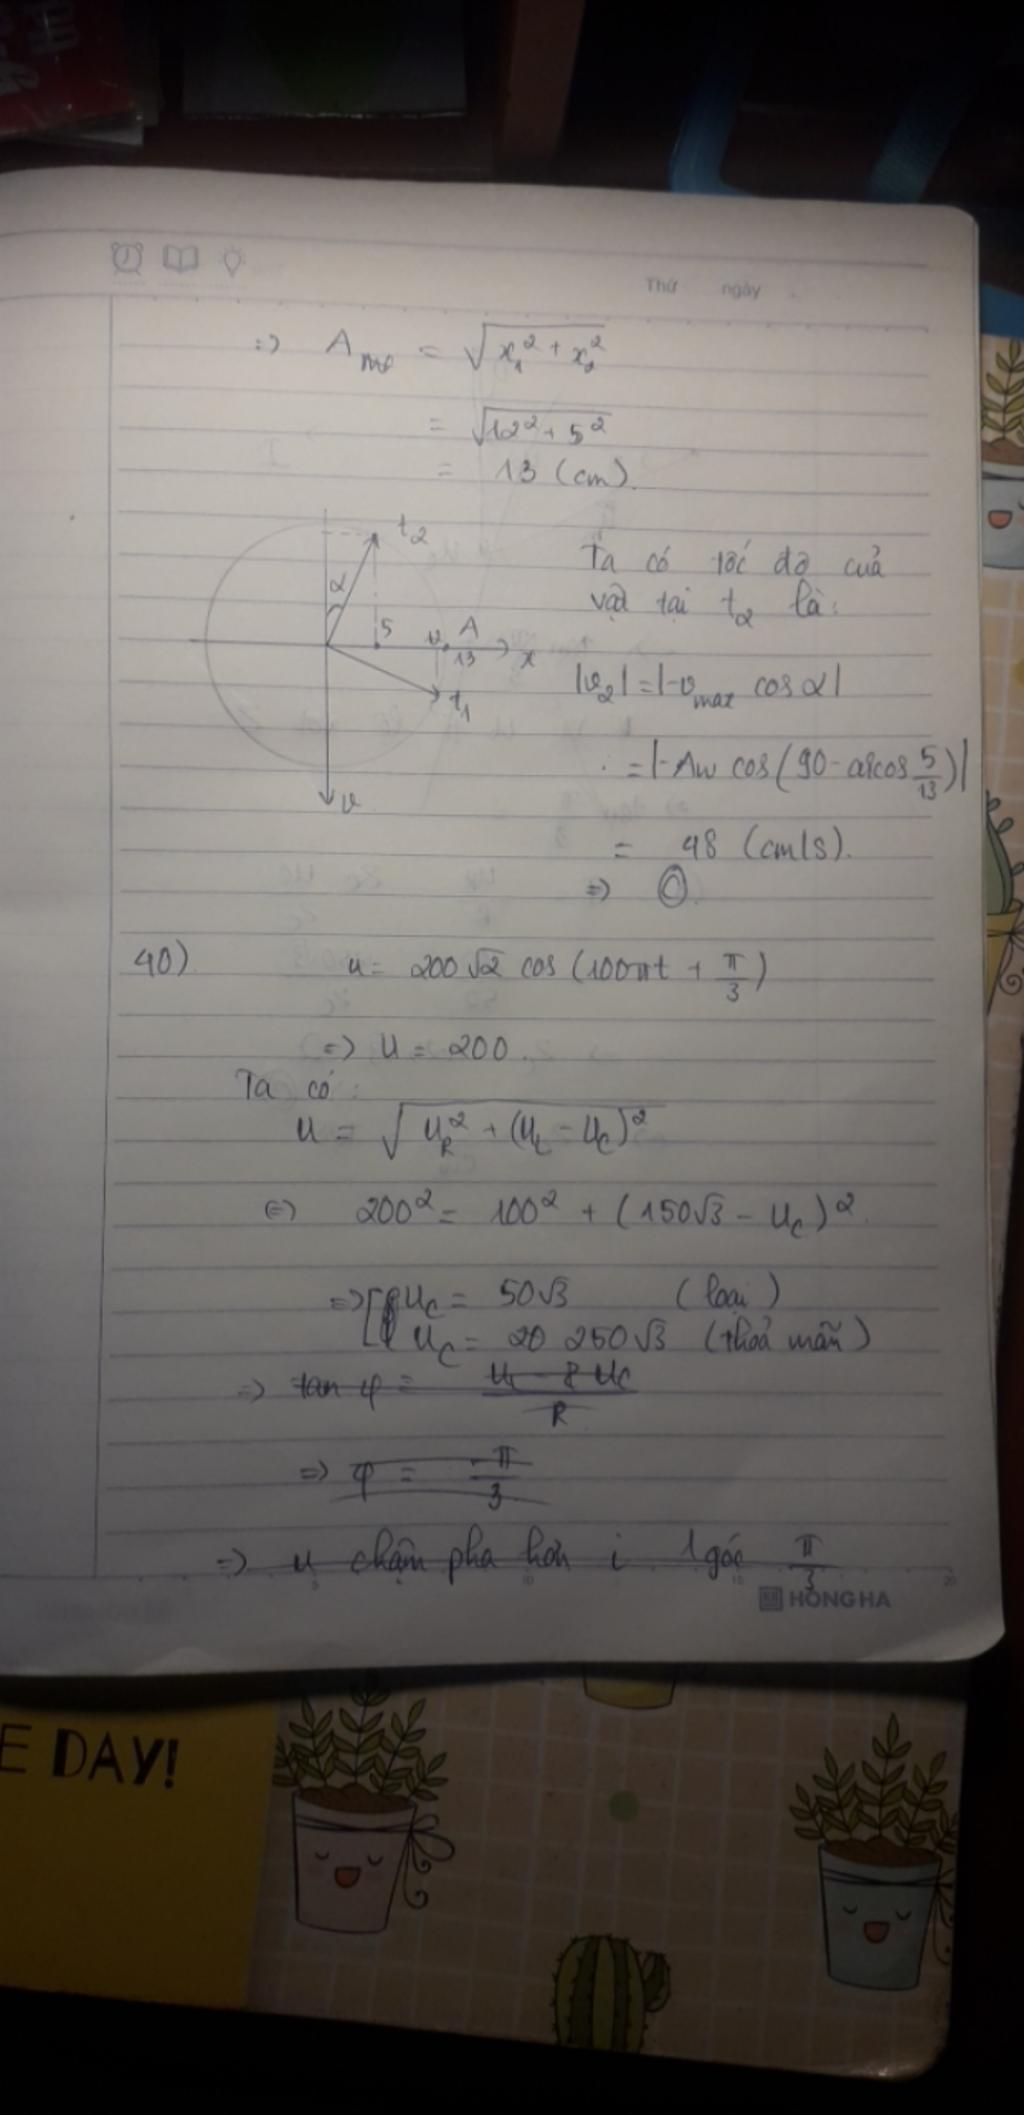 Thứ ngày
=> A = √(x₁² + x₂²)
= √(12² + 5²)
= 13 (cm).
t₂
α
5
A
13
x
t₁
v
Ta có tốc độ của
vật tại t₂ là:
|v₂| = |-v_max cos α|
= |-Aw cos(90 - arcos 5/13)|
= 48 (cm/s).
=> C.
40) u = 200√2 cos (100πt + π/3)
=> U = 200.
Ta có:
U = √(U_R² + (U_L - U_C)²)
<=> 200² = 100² + (150√3 - U_C)²
=> [ U_C = 50√3 (loại)
U_C = 20 250√3 (thoả mãn)
=> tan φ = U_L - U_C / R
=> φ = -π/3
=> u chậm pha hơn i 1 góc π/3
HONG HA
E DAY!